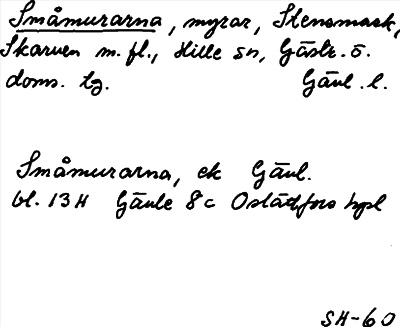 Småmurarna, myrar, Stensmark,
Skarven m. fl., Hille sn, Gästr. ö.
doms. tg. Gävl. l.
Småmurarna, ek Gävl.
bl. 13 H Gävle 8 c Oslättfors hpl
SH-60